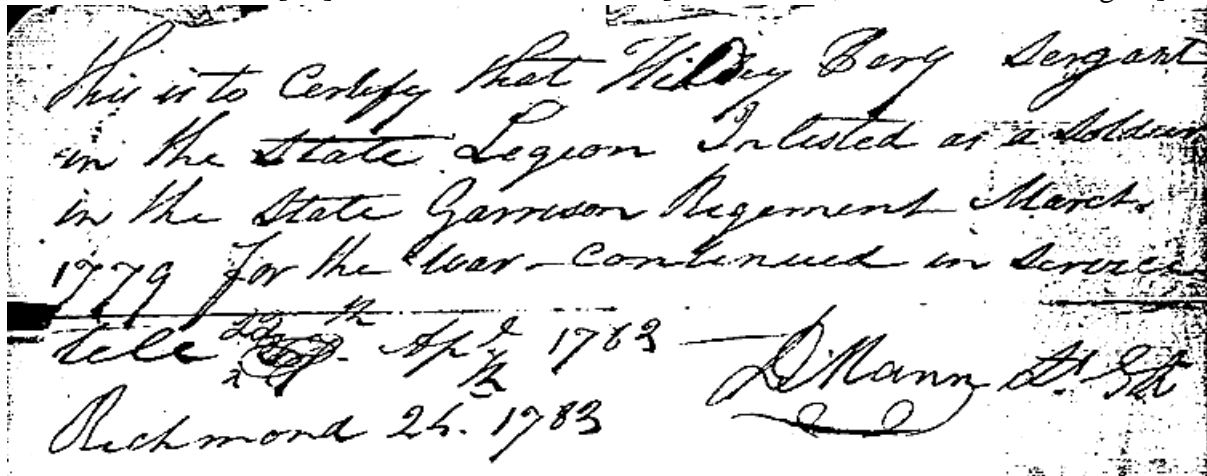 This is to Certify that Wilday Berry Sergant
in the State Legion Inlisted as a Soldier
in the State Garrison Regement March
1779 for the War – continued in Service
tele 22th Apl. 1783 – D Mann Lt. 
Richmond 24th. 1783